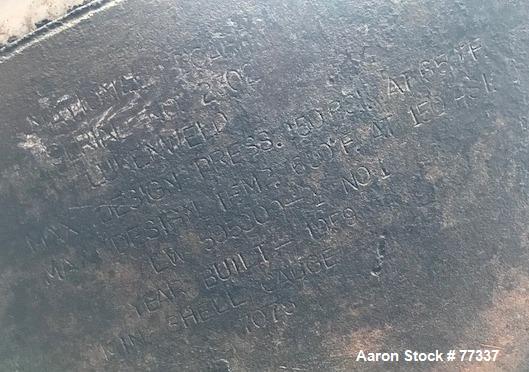 SERIAL NO. 2302
LUKENWELD
MAX. DESIGN PRESS. 150 P.S.I. AT 650°F
MAX. DESIGN TEMP. 650°F. AT 150 P.S.I.
NO.1
YEAR BUILT - 1959
MIN. SHELL GAUGE
1.073
Aaron Stock # 77337